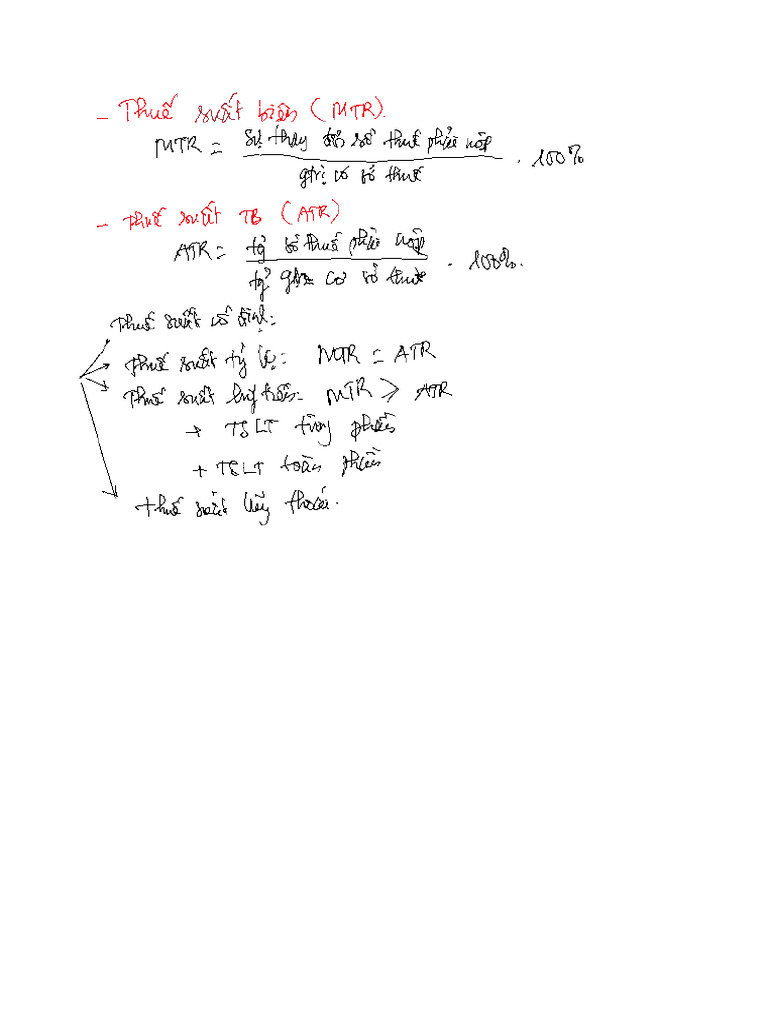 - Thuế suất biên (MTR).
MTR = Sự thay đổi số thuế phải nộp . 100%
gtrị cơ sở thuế
- Thuế suất TB (ATR)
ATR = số thuế phải nộp . 100%.
cơ sở thuế
Thuế suất cố định:
Thuế suất tỷ lệ: MTR = ATR
Thuế suất luỹ tiến: MTR > ATR
+ TSLT từng phần
+ TSLT toàn phần
thuế suất lũy thoái.